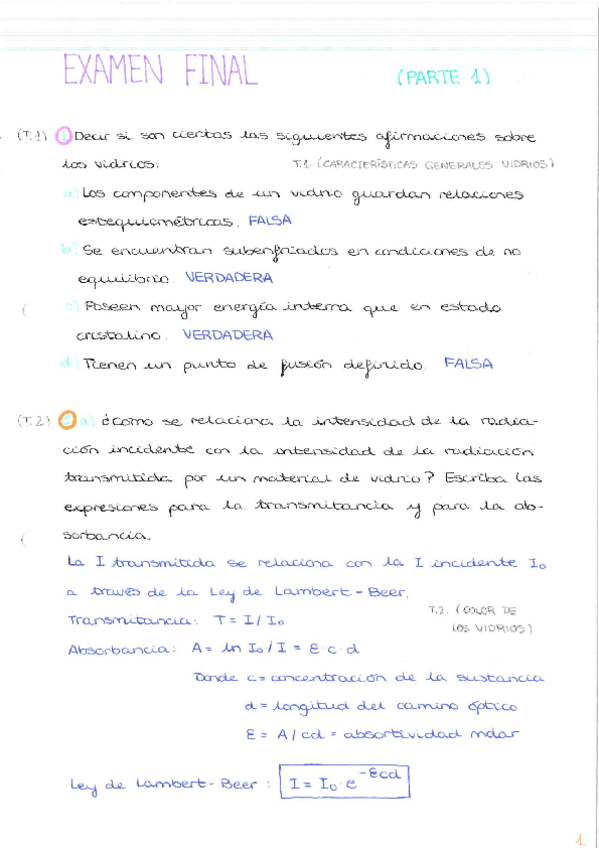 EXAMEN FINAL (PARTE 1)
(T.1) 1 Decir si son ciertas las siguientes afirmaciones sobre
los vidrios: T.1. (CARACTERÍSTICAS GENERALES VIDRIOS)
a) Los componentes de un vidrio guardan relaciones
estequiométricas. FALSA
b) Se encuentran subenfriados en condiciones de no
equilibrio. VERDADERA
c) Poseen mayor energía interna que en estado
cristalino. VERDADERA
d) Tienen un punto de fusión definido. FALSA
(T.2) 2 a) ¿Cómo se relaciona la intensidad de la radia-
ción incidente con la intensidad de la radiación
transmitida por un material de vidrio? Escriba las
expresiones para la transmitancia y para la ab-
sorbancia.
La I transmitida se relaciona con la I incidente I₀
a través de la Ley de Lambert-Beer.
Transmitancia: T = I/I₀ T.2. (COLOR DE
LOS VIDRIOS)
Absorbancia: A = ln I₀/I = ε·c·d
Donde c = concentración de la sustancia
d = longitud del camino óptico
ε = A/cd = absortividad molar
Ley de Lambert-Beer: I = I₀·e^-εcd
1.